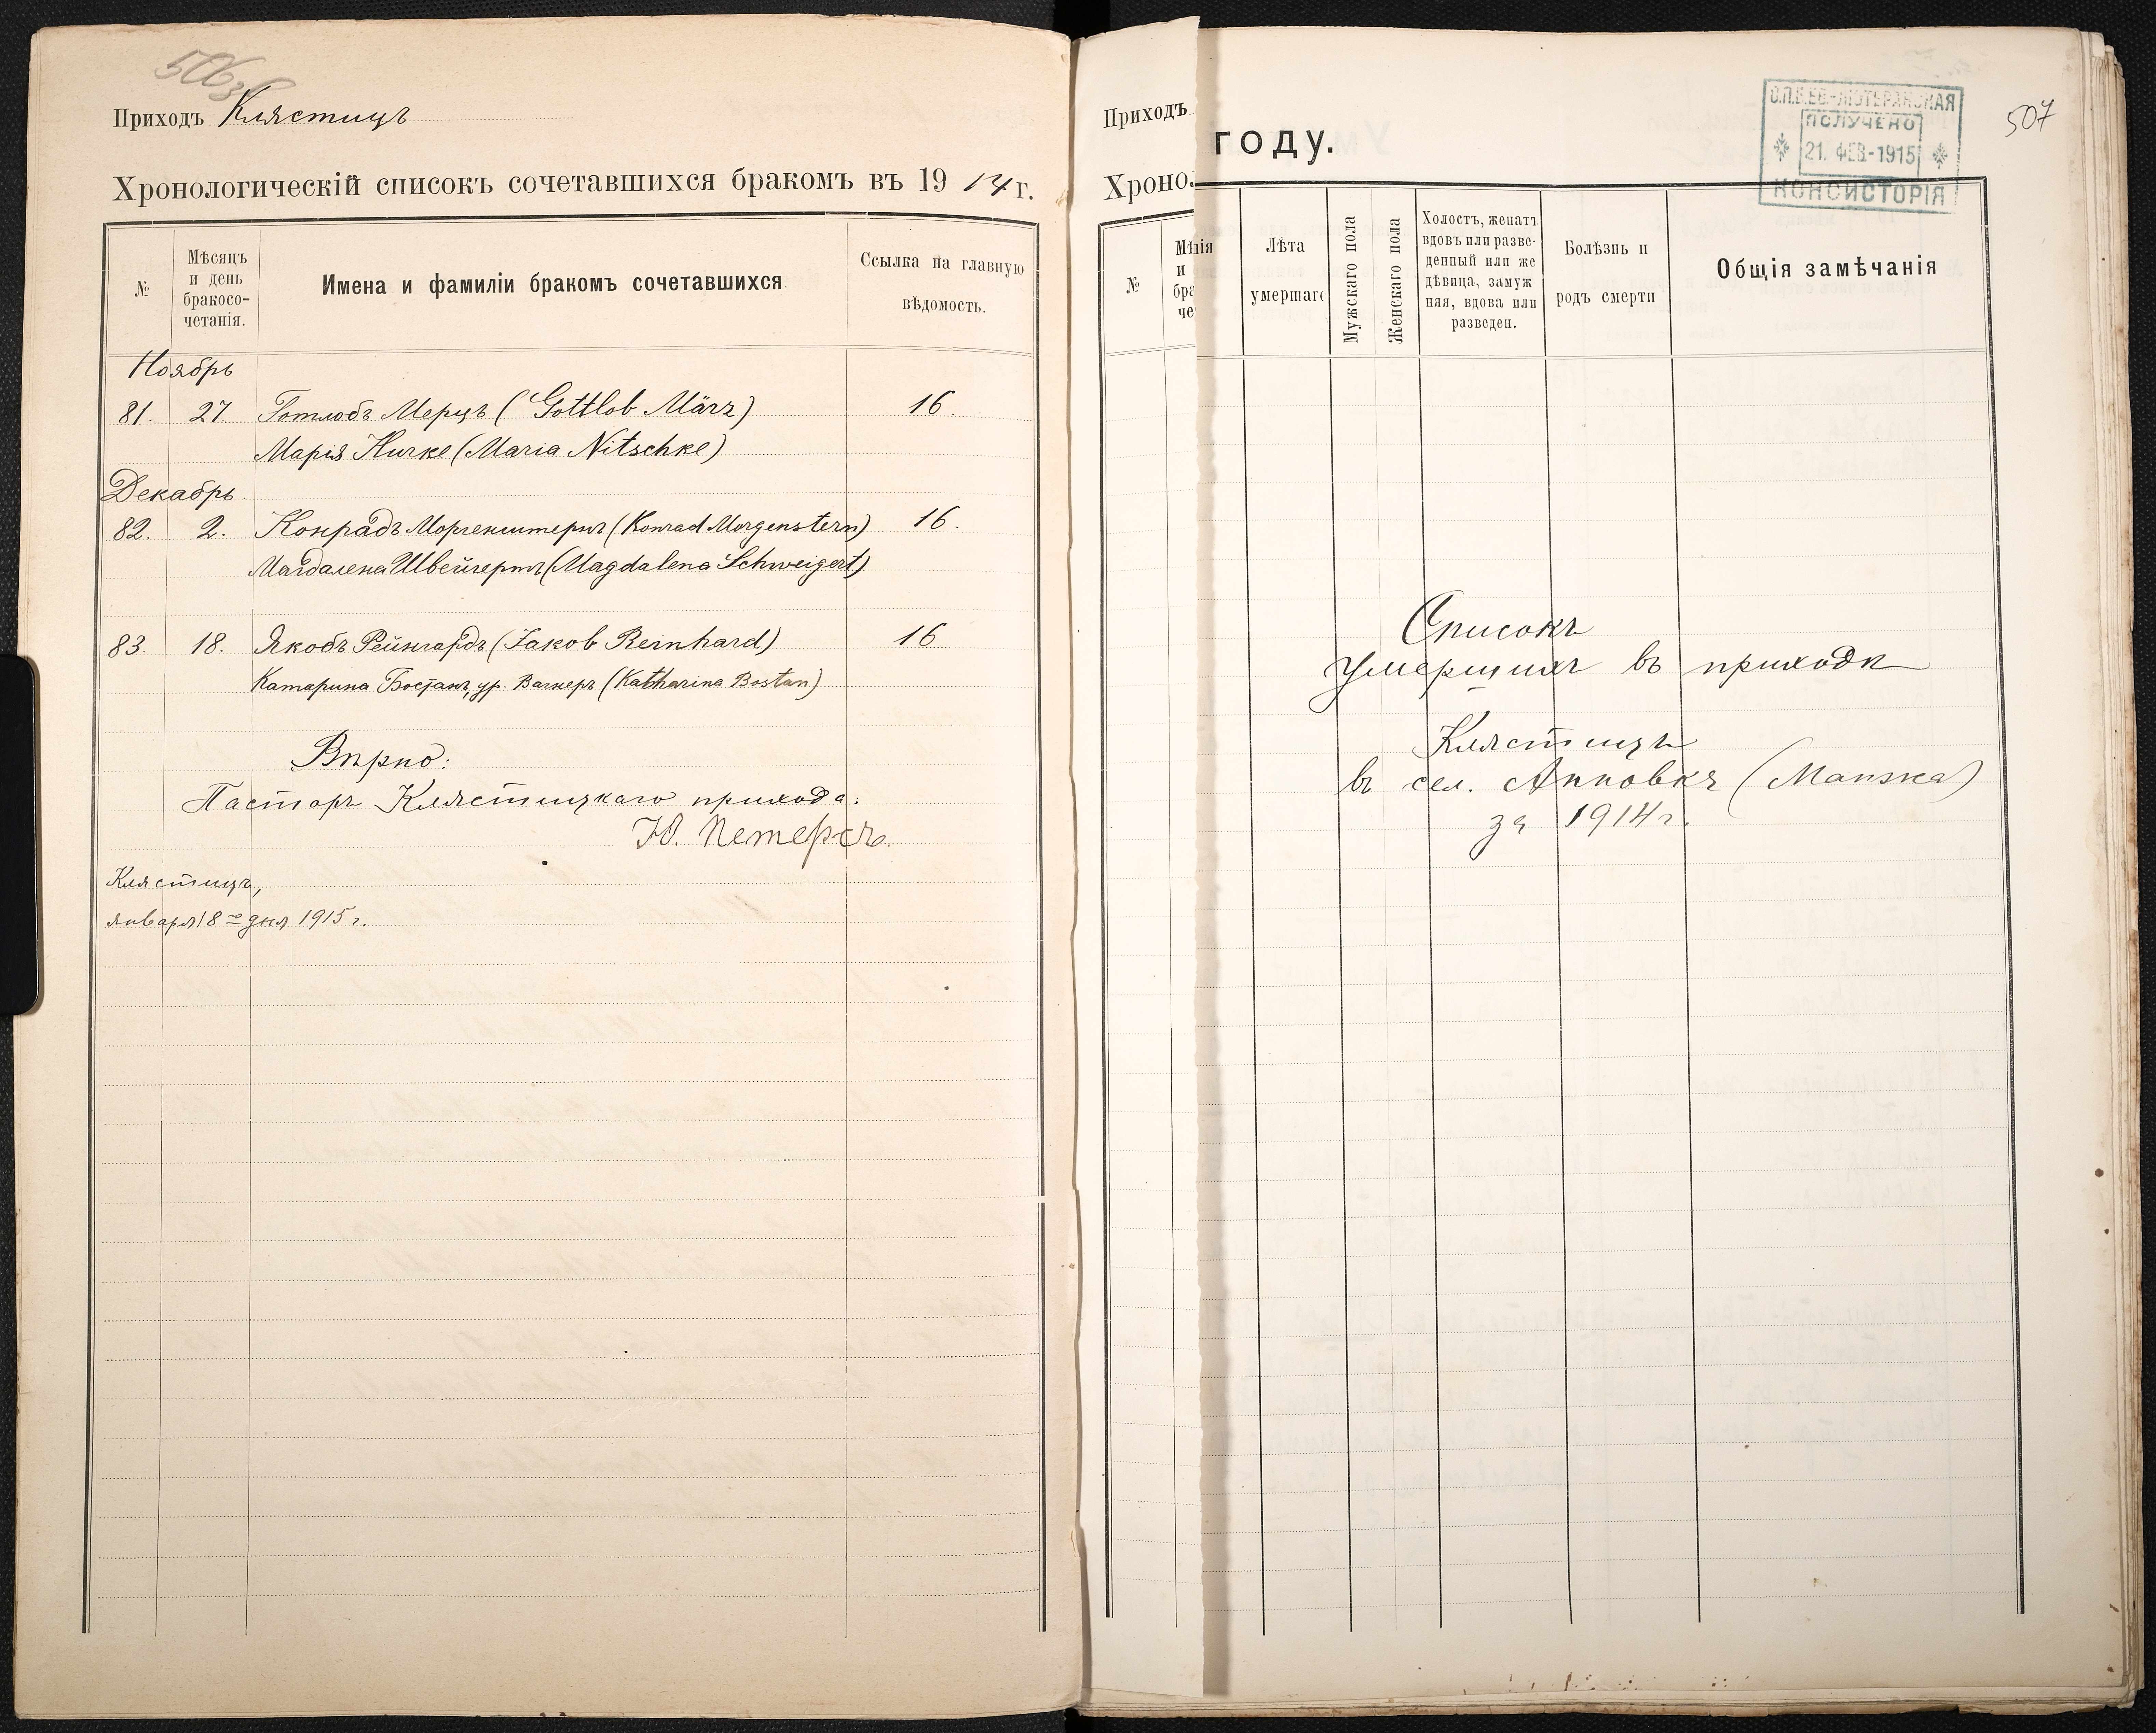 506об
Приходъ Клястицъ
Хронологическій списокъ сочетавшихся бракомъ въ 1914 г.
№
Мѣсяцъ
и день
бракосо-
четанія.
Имена и фамиліи бракомъ сочетавшихся
Ссылка на главную
вѣдомость.
Ноябрь
81. 27. Готлобъ Мерцъ (Gottlob März) 16.
Марія Ничке (Maria Nitschke)
Декабрь
82. 2. Конрадъ Моргенштернъ (Konrad Morgenstern) 16.
Магдалена Швейгертъ (Magdalena Schweigert)
83. 18. Якобъ Рейнгардъ (Jakob Reinhard) 16
Катарина Бостанъ, ур. Вагнеръ (Katharina Bostan)
Вѣрно:
Пасторъ Клястицкаго прихода:
Ю. Петерсъ.
Клястицъ,
января 18го дня 1915 г.
Приходъ
Хроно
№
Мѣ
и
бра
че
нія
году.
О.П.Б.ЕВ.-ЛЮТЕРАНСКАЯ
ПОЛУЧЕНО
21. ФЕВ-1915
КОНСИСТОРІЯ
507
Лѣта
умершаго
Мужскаго пола
Женскаго пола
Холостъ, женатъ
вдовъ или разве-
денный или же
дѣвица, замуж
няя, вдова или
разведен.
Болѣзнь и
родъ смерти
Общія замѣчанія
Списокъ
умершихъ въ приходѣ
Клястицъ
въ сел. Анновкѣ (Манжа)
за 1914 г.